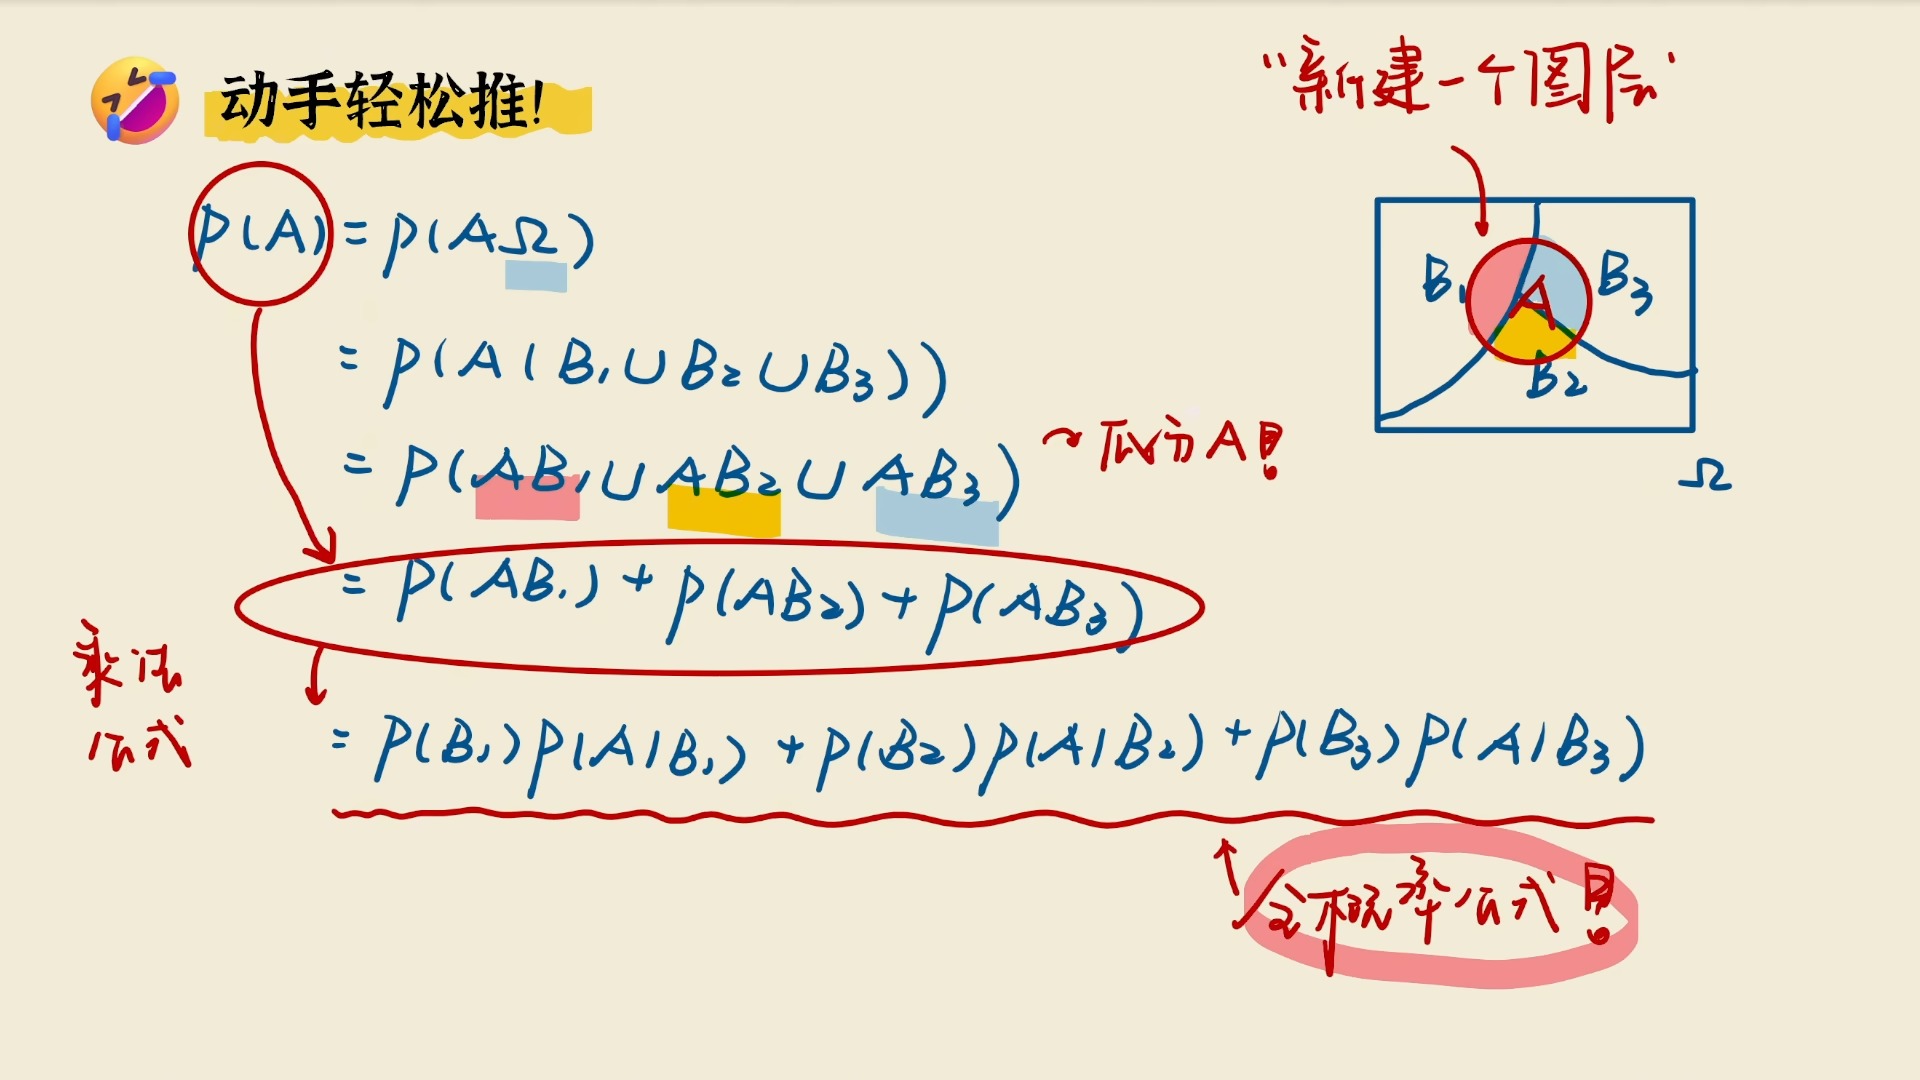 动手轻松推!
“新建一个图层”
P(A) = P(AΩ)
= P(A(B₁∪B₂∪B₃))
= P(AB₁∪AB₂∪AB₃)
瓜分A!
= P(AB₁) + P(AB₂) + P(AB₃)
乘法
公式
= P(B₁)P(A|B₁) + P(B₂)P(A|B₂) + P(B₃)P(A|B₃)
全概率公式!
B₁
A
B₃
B₂
Ω